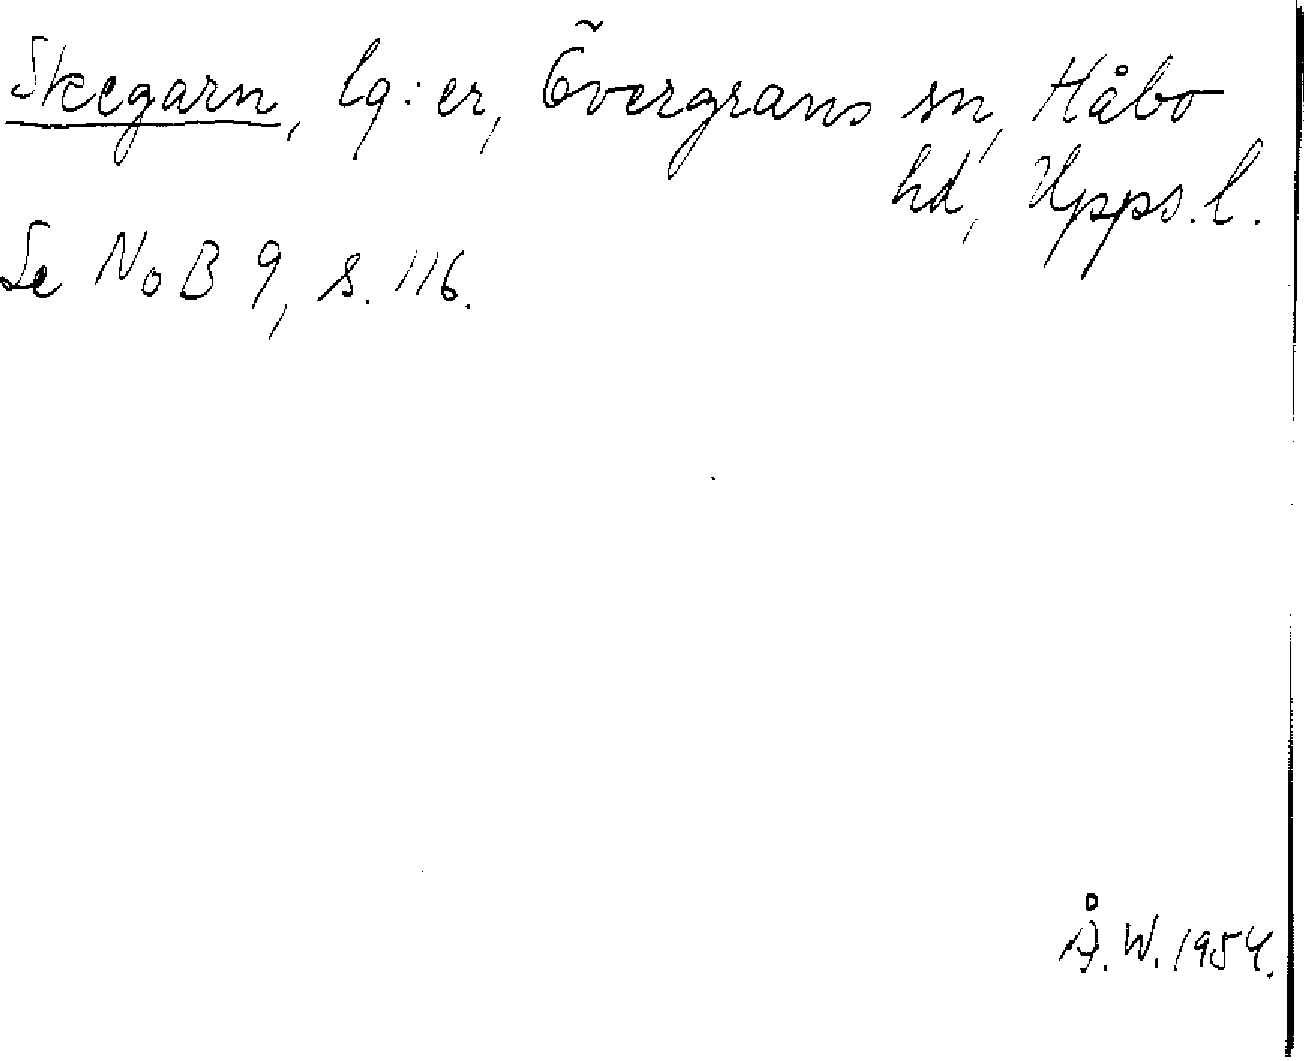 Skegarn, lg:er, Övergrans sn, Håbo
hd, Upps. l.
Se NoB 9, s. 116.
Å. W. 1954.